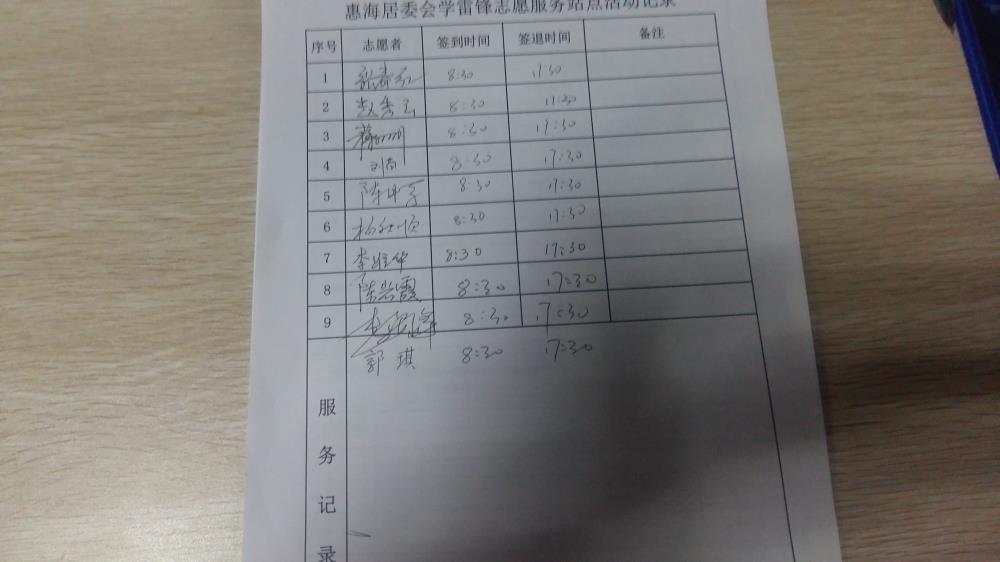 惠海居委会学雷锋志愿服务站点活动记录
序号 志愿者 签到时间 签退时间 备注
1 8:30 17:30
2 赵秀玉 8:30 17:30
3 8:30 17:30
4 8:30 17:30
5 陈 8:30 17:30
6 杨 顺 8:30 17:30
7 李 华 8:30 17:30
8 陈岩霞 8:30 17:30
9 8:30 17:30
郭琪 8:30 17:30
服
务
记
录